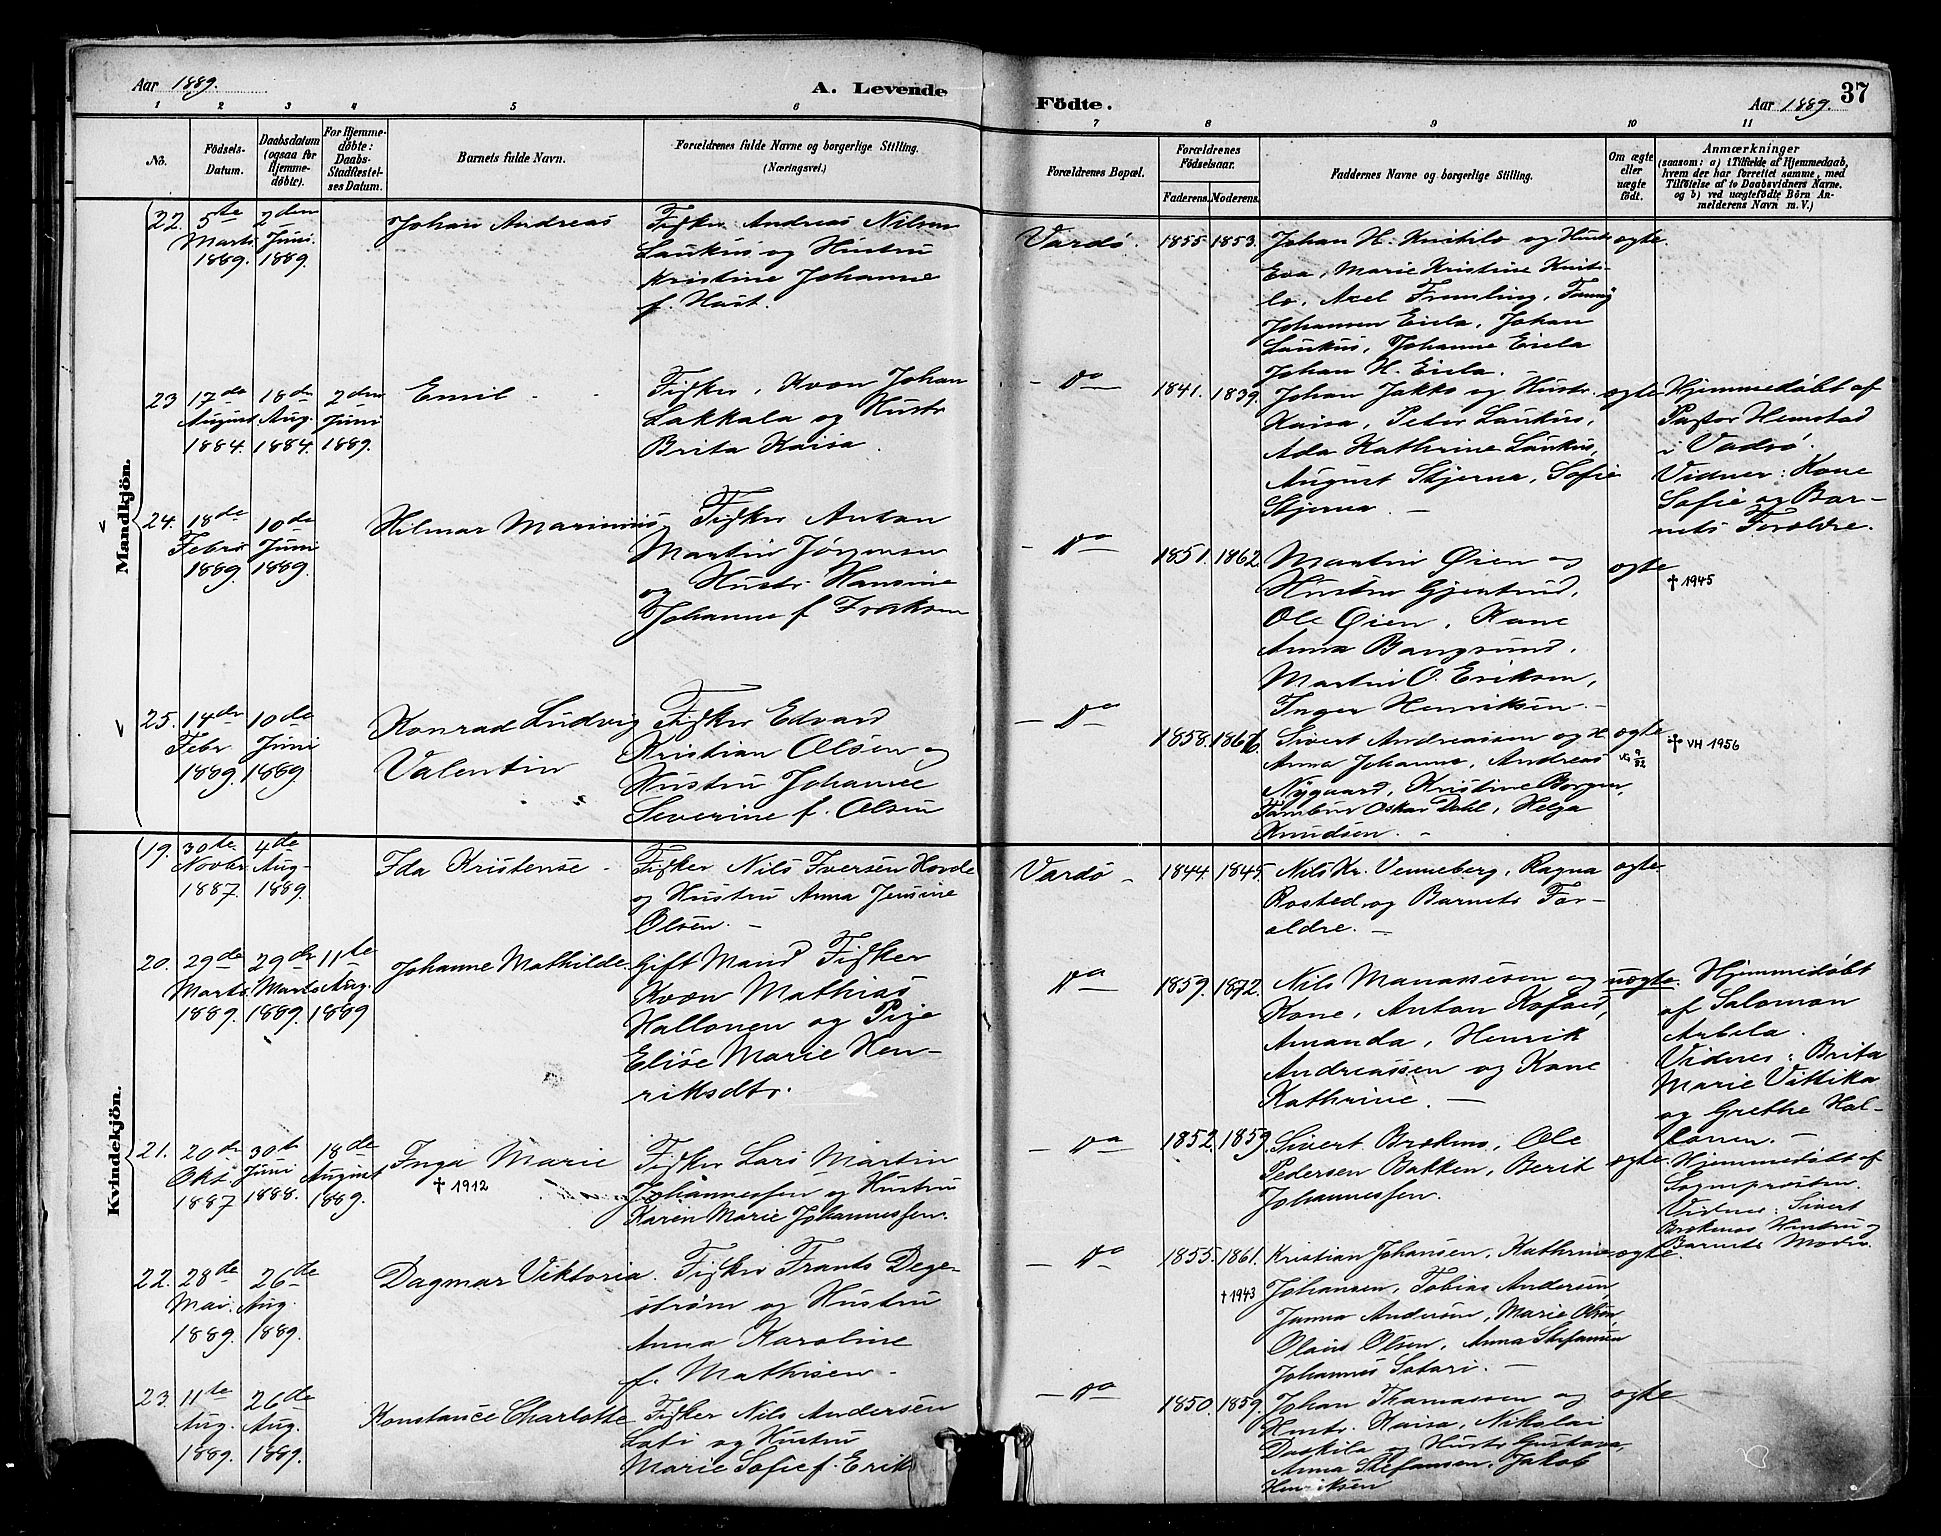 Aar 1889.
A. Levende
Födte.
Aar 1889.
37
1 2 3 4 5 6 7 8 9 10 11
No.
Födsels-
Datum.
Daabsdatum
(ogsaa for
Hjemme-
döbte).
For Hjemme-
döbte:
Daabs-
Stadfæstel-
ses Datum.
Barnets fulde Navn.
Forældrenes fulde Navne og borgerlige Stilling.
(Næringsvei.)
Forældrenes Bopæl.
Forældrenes
Födselsaar.
Faderens. Moderens.
Faddernes Navne og borgerlige Stilling.
Om ægte
eller
uægte
födt.
Anmærkninger
(saasom: a) i Tilfælde af Hjemmedaab,
hvem der har forrettet samme, med
Tilföielse af to Daabsvidners Navne,
og b) ved uægtefödte Börn An-
melderens Navn m. V.)
Mandkjön.
22. 5te
Marts
1889.
2den
Juni.
1889.
Johan Andreas
Fisker Andreas Nilsen
Laukus og Hustru
Kristine Johanne
f. Hast.
Vardö.
1855. 1853.
Johan H. Knitilo og Hustr
Eva, Marie Kristine Knit-
lo, Axel Framling, Fanny
Johansen Eiela, Johan
Laukus, Johanne Eiela
Johan H. Eiela.
ægte.
23 17de
August
1884.
18de
Aug.
1884.
2den
Juni
1889.
Emil
Fisker, Kvæn Johan
Lakkala og Hustr
Brita Kaisa.
Do
1841. 1839.
Johan Jakko og Hustr.
Kaisa, Peter Laukus,
Ada Kathrine Laukus,
August Skjerna, Sofie
Skjerna.
ægte
Hjemmedøbt af
Pastor Hemstad
i Vadsø.
Vidner: Kone
Sofie og Bar-
nets Forældre.
24. 18de
Febr
1889.
10de
Juni
1889.
Hilmar Marinius
Fisker Anton
Martin Jørgensen
og Hustr. Hansine
Johanne f. Fredriksen
Do
1851. 1862
Martin Øien og
Hustru Gjertrud,
Ole Øien, Kone
Anna Bangsund,
Martin O. Eriksen,
Inger Henriksen.
ægte
✝ 1945
25. 14de
Febr
1889.
10de
Juni
1889.
Konrad Ludvig
Valentin
Fisker Edvard
Kristian Olsen og
Hustru Johanne
Severine f. Olsen
Do
1858. 1866.
Sivert Andreassen og H.
Anna Johanna, Andreas
Nygaard, Kristine Borgen,
Tambur Oskar Dahl, Helga
Knudsen.
ægte
✝ VH 1956
Kvindekjön.
19. 30te
Novbr
1887.
4de
Aug.
1889.
Ida Kristense
Fisker Nils Iversen Hovde
og Hustru Anna Jensine
Olsen.
Vardö
1844. 1845.
Nils Kr. Venneberg, Ragna
Rosted og Barnets For-
ældre.
ægte
20. 29de
Marts
1889.
29de
Marts
1889.
11te
Aug.
1889
Johanne Mathilde
Gift Mand Fisker
Kvæn Mathias
Hallonen og Pige
Elise Marie Hen-
riksdtr.
Do
1859. 1872.
Nils Manassesen og
Kone, Anton Kofoed,
Amanda, Henrik
Andreassen og Kone
Kathrine.
uægte.
Hjemmedøbt
af Salomon
Arbela.
Vidner: Brita
Marie Vittika
og Grethe Hal-
lonen.
21. 20de
Okt.
1887
30te
Juni
1888.
18de
August
1889.
Inga Marie
✝ 1912
Fisker Lars Martin
Johannessen og Hustru
Karen Marie Johannessen.
Do
1852. 1859.
Sivert Brekmo, Ole
Pedersen Bakken, Berit
Johannessen.
ægte
Hjemmedøbt af
Sogneprosten.
Vidner: Sivert
Brekmos Hustru og
Barnets Moder.
22. 28de
Mai.
1889.
26de
Aug.
1889.
Dagmar Viktoria.
Fisker Frants Dege-
ström og Hustru
Anna Karoline
f. Mathisen.
Do
1855. 1861.
✝ 1943
Kristian Johansen, Kathrine
Johansen, Tobias Andersen,
Janna Andersen, Marie Olsen,
Olaus Olsen, Anna Stefansen
Johannes Satari.
ægte.
23. 11te
Aug.
1889.
26de
Aug.
1889.
Konstance Charlotte
Fisker Nils Andersen
Lati og Hustru
Marie Sofie f. Erik
Do
1850. 1859.
Johan Thomassen og
Hustr. Kaisa, Nikolai
Daskila og Hustr Gustava,
Anna Stefansen, Jakob
Henriksen
ægte